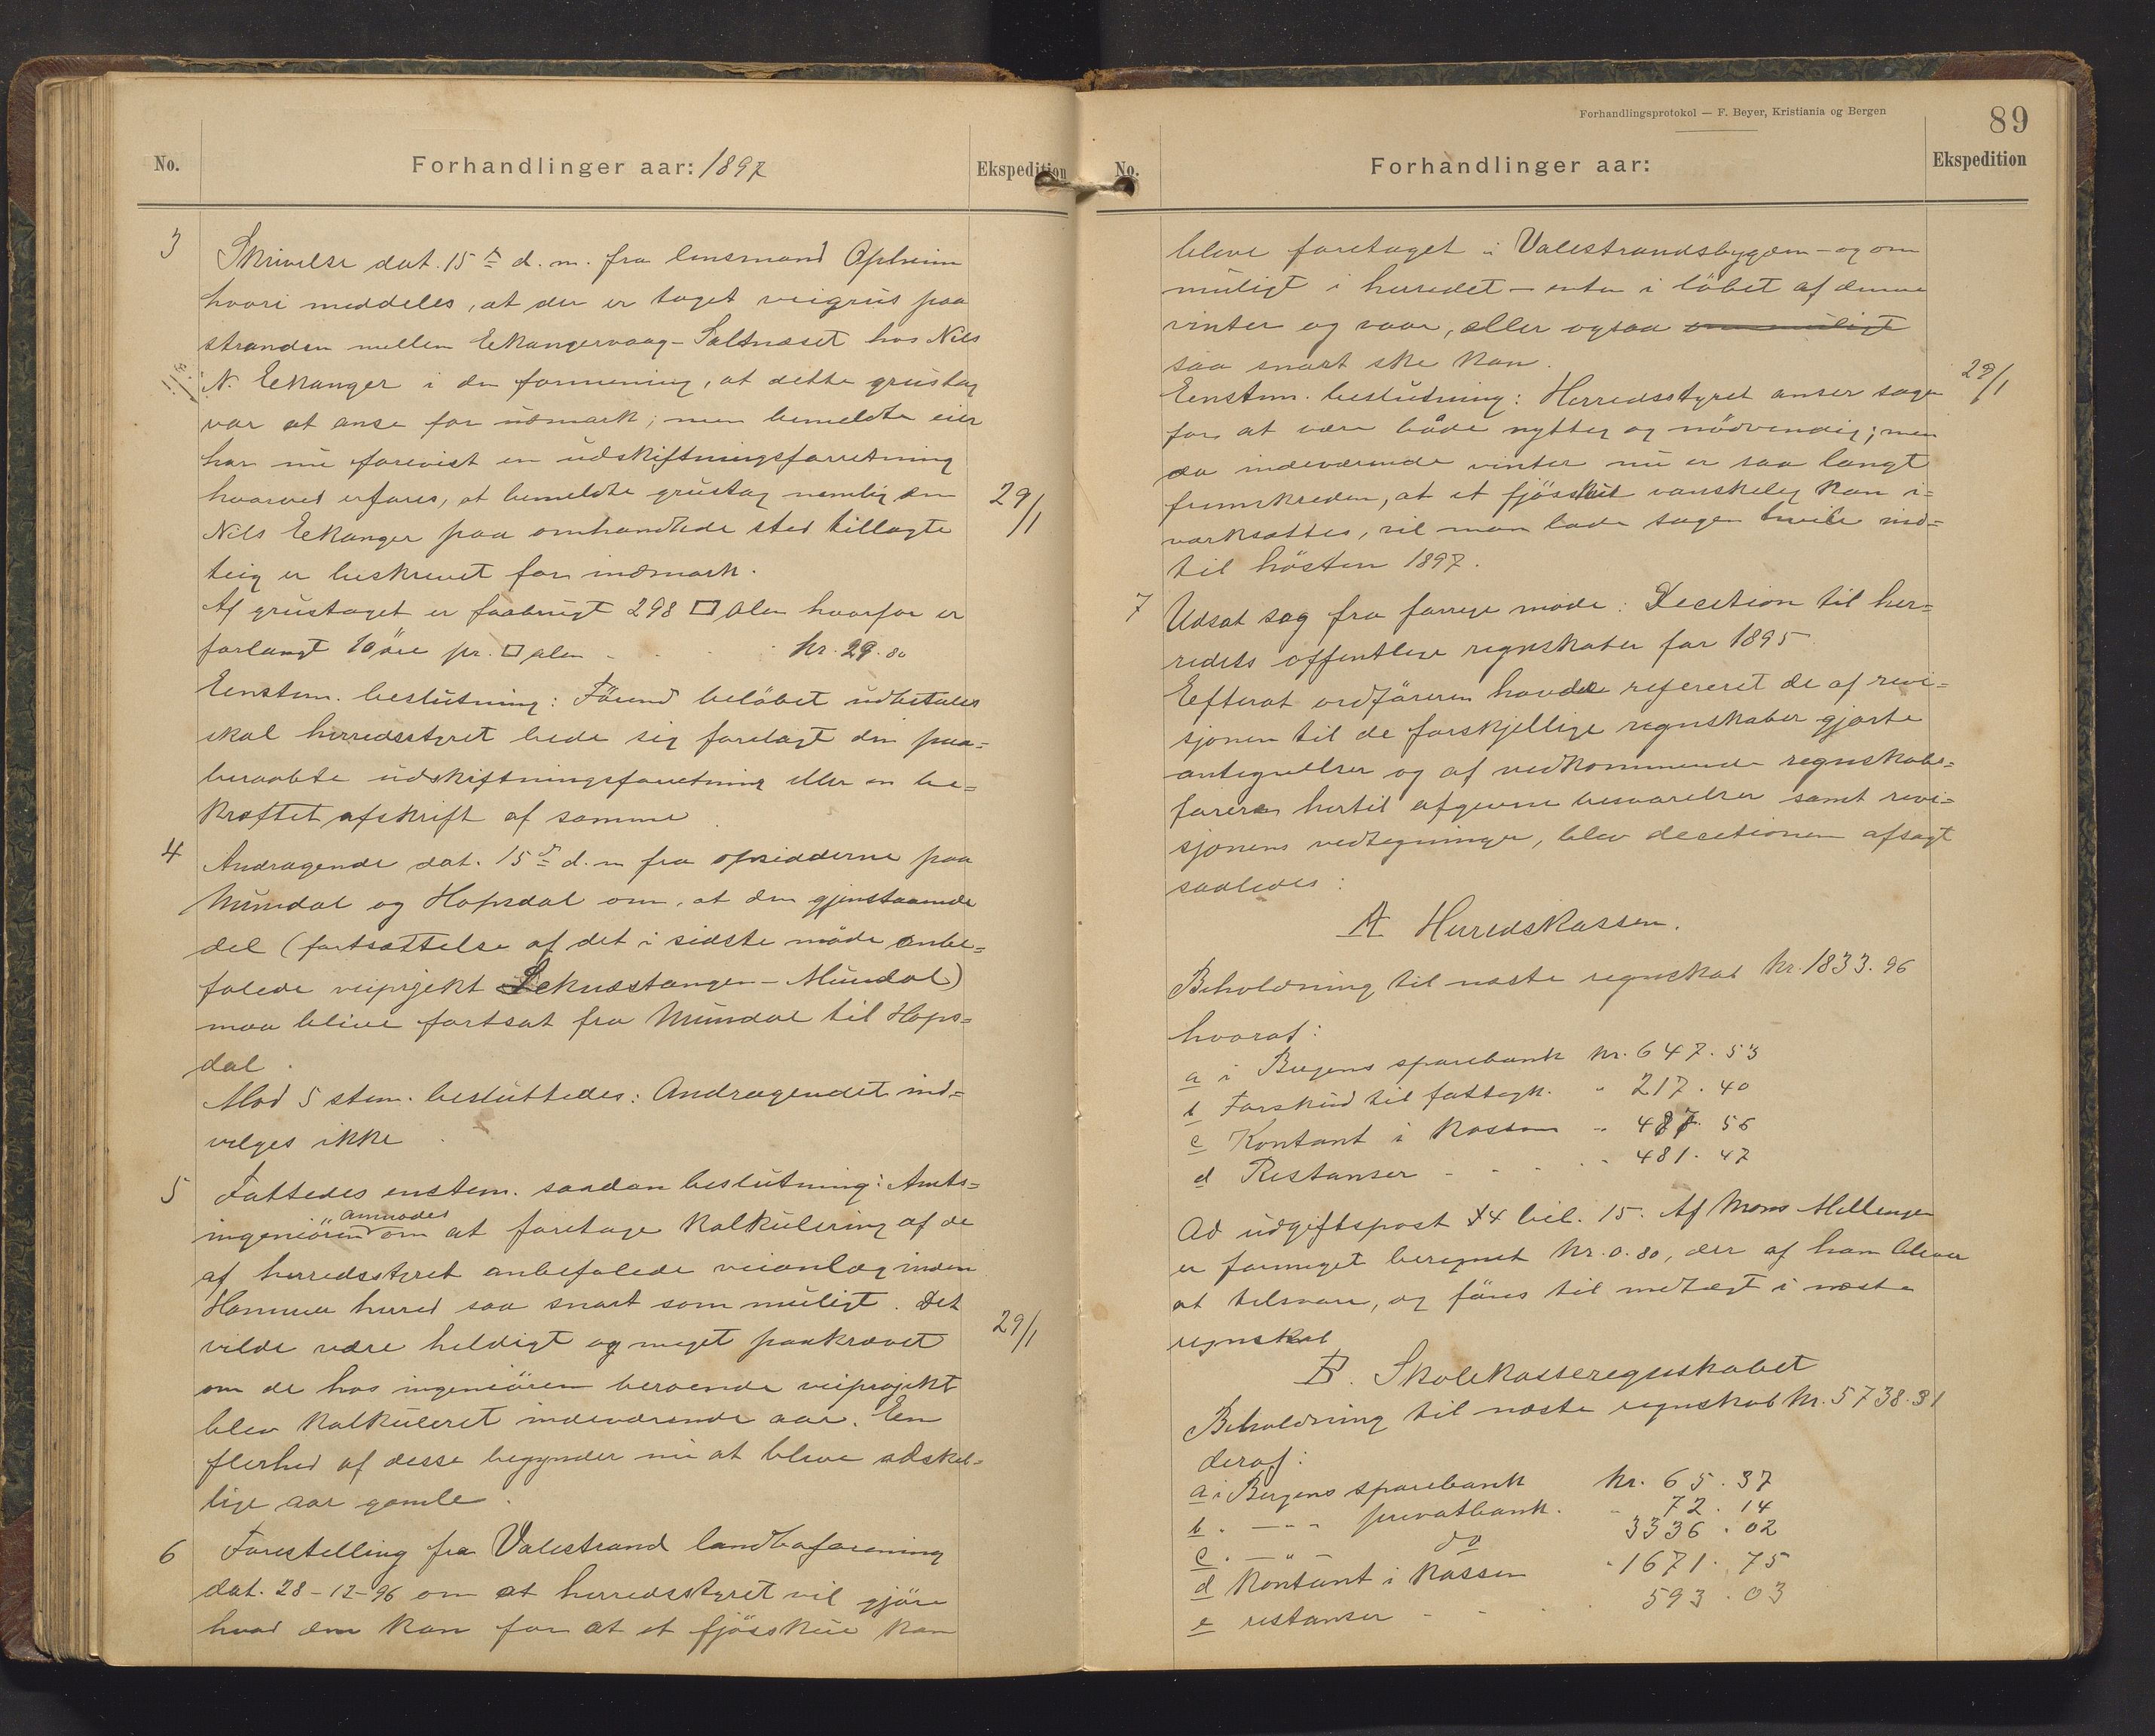 No.
Forhandlinger aar: 1897
Ekspedition
3
Skrivelse dat. 15de d. m. fra lensmand Opheim
hvori meddeles, at der er taget veigrus paa
stranden mellem Eknangervaag-Saltnæset hos Nils
N. Eknanger i den formening, at dette grustag
var at anse for udmark; men bemeldte eier
har nu forevist en udskiftningsforretning
hvorved erfares, at bemeldte grustag nemlig den
Nils Eknanger paa omhandlede sted tillagte
29/1
teig er beskrevet for indmark.
Af grustaget er forbrugt 298 □ alen hvorfor er
forlangt 10 öre pr. □ alen - - - kr. 29.80
Eenstem. beslutning: Förend belöbet udbetales
skal herredsstyret bede sig forelagt den paa=
beraabte udskiftningsforretning eller en be=
kræftet afskrift af samme.
4
Andragende dat. 15de d. m fra opsidderne paa
Mundal og Hopsdal om, at den gjenstaaende
del (fortsættelse af det i sidste möde anbe=
falede veiprojekt Leknesstangen - Mundal)
maa blive fortsat fra Mundal til Hops=
dal.
Mod 5 stem. besluttedes: Andragendet ind=
vilges ikke.
5
Fattedes enstem. saadan beslutning: Amts=
ingeniören anmodes om at foretage kalkulering af de
af herredsstyret anbefalede veianlæg inden
Hammer herred saa snart som muligt. Det
vilde være heldigt og meget paakrævet
29/1
om de hos ingeniören beroende veiprojekt
blev kalkuleret indeværende aar. Een
flerhed af desse begynder nu at bleve adskil=
lige aar gamle.
6
Forestilling fra Valestrand landboforening
dat. 28-12-96 om at herredsstyret vil gjöre
hvad den kan for at et fjösskue kan
Forhandlingsprotokol — F. Beyer, Kristiania og Bergen
89
No.
Forhandlinger aar:
Ekspedition
bleve foretaget i Valestrandsbygden - og om
muligt i herredet - enten i löbet af denne
vinter og vaar, eller ogsaa om muligt
saa snart ske kan.
29/1
Eenstem. beslutning: Herredsstyret anser sagen
for at være både nyttig og nödvendig; men
da indeværende vinter nu er saa langt
fremskreden, at et fjösskue vanskelig kan i=
værksættes, vil man lade sagen hvile ind=
til hösten 1897.
7
Udsat sag fra forrige möde: Decition til her=
redets offentlige regnskaber for 1895
Eefterat ordföreren havde refereret de af revi=
sjonen til de forskjellige regnskaber gjorte
antegnelser og af vedkommende regnskabs=
förere hertil afgivne besvarelser samt revi=
sjonens vedtegninger, blev decitionen afsagt
saaledes:
A Herredskassen.
Beholdning til næste regnskab kr. 1833.96
hvoraf:
a i Bergens sparebank kr. 647.53
b Forskud til fattigk. " 217.40
c Kontant i kassen " 487.56
d Restanser - - - " 481.47
Ad udgiftspost 14 bil. 15. Af Mons Mellingen
er formeget beregnet kr. 0.80, der af ham bliver
at tilsvare, og föres til indtægt i næste
regnskab
B. Skolekasseregnskabet
Beholdning til næste regnskab kr. 5738.31
deraf:
a i Bergens sparebank kr. 65.37
b " — " — privatbank. " 72.14
c " — " — do 3336.02
d Kontant i kassen " 1671.75
e restanser - - - 593.03